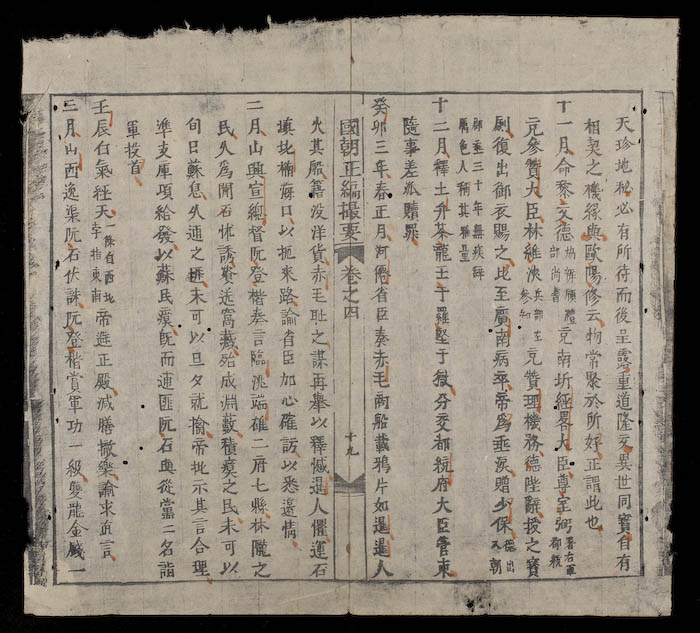 天珍地秘必有所待而後呈露重道隆文異世同寶自有
相契之機緣與歐陽修云物常聚於所好正謂此也
十一月命黎文德協辦領禮部尚書充南圻經畧大臣尊室弼署右軍都統
充參贊大臣林維浹兵部左參知充贊理機務德陛辭授之寶
劍復出御衣賜之比至廣南病卒帝爲垂淚贈少保德出入朝
郎垂三十年無疾詳厲色人稱其雅量
十二月釋土升茶龍王于羅堅于微分交都統府大臣管束
隨事差派贖罪
癸卯三年春正月河僊省臣奏赤毛兩船載鴉片如暹暹人
國朝正編撮要 卷之四 十九
火其船籍沒洋貨赤毛耻之謀再舉以釋憾暹人懼運石
填北楠海口以扼來路諭省臣加心確訪以悉邊情
二月山興宣總督阮登楷奏言臨洮端雄二府七縣林隴之
民久爲閒石怵誘賚送窩藏殆成淵藪積瘼之民未可以
旬日蘇息久逋之匪未可以旦夕就擒帝批示其言合理
準支庫項給發以蘇民瘼既而逋匪阮石與從黨二名詣
軍投首
壬辰白氣經天一條自西北孛指東南帝避正殿減膳撤樂諭求直言
三月山西逸渠阮石伏誅阮登楷賞軍功一級雙龍金錢一